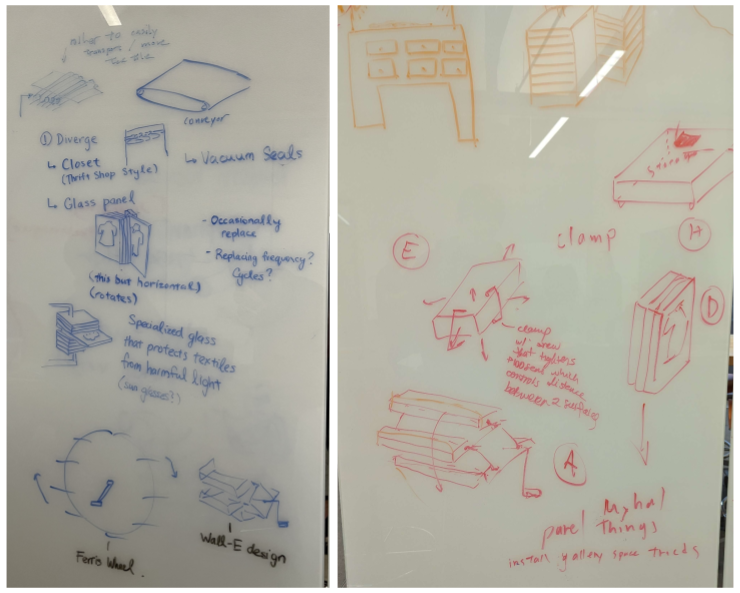 rather to easily
transport / move
conveyor
① Diverge
↳ Closet
(Thrift Shop Style)
↳ Vacuum Seals
↳ Glass panel
- Occasionally
replace
- Replacing frequency?
Cycles?
(this but horizontal)
(rotates)
Specialized glass
that protects textiles
from harmful light
(sun glasses?)
Ferris Wheel
Wall-E design
clamp
H
E
D
clamp
w/ screw
that tightens
which
controls distance
between 2 surfaces
A
Myhal
panel things
install gallery space